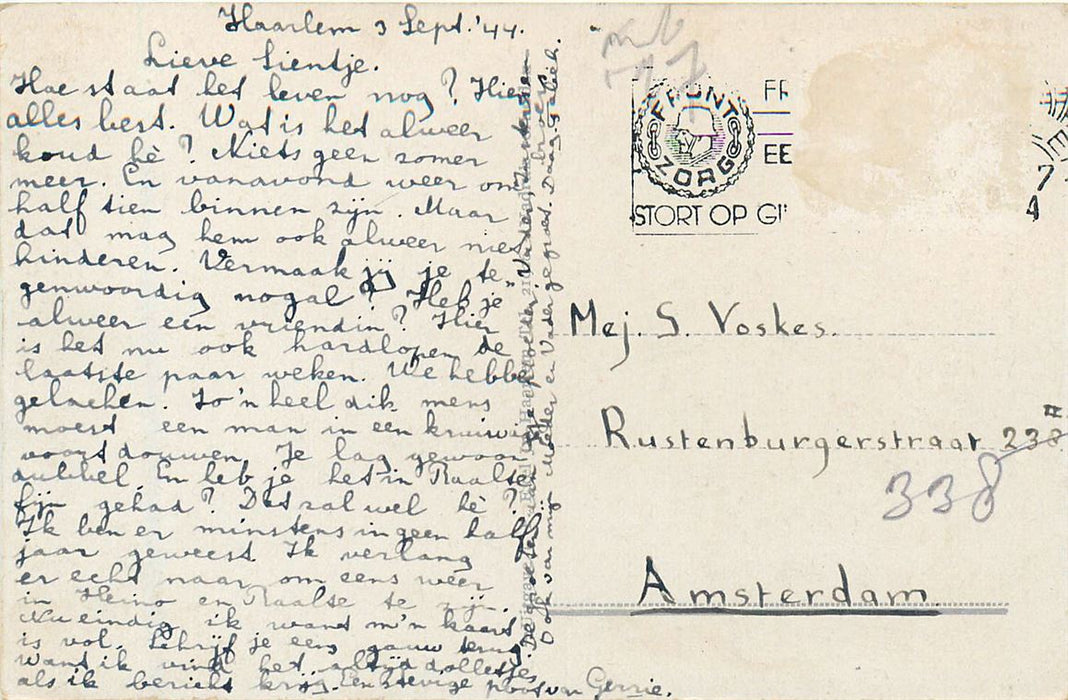 Haarlem 3 Sept.'44.
Lieve Sientje.
Hoe staat het leven nog? Hier
alles best. Wat is het alweer
koud hè? Niets geen zomer
meer. En vanavond weer om
half tien binnen zijn. Maar
dat mag hem ook alweer niet
hinderen. Vermaak jij je te
genwoordig nogal? Heb je
alweer een vriendin? Hier
is het nu ook hardlopen de
laatste paar weken. We hebben
gelachen. Zo'n heel dik mens
moest een man in een kruiwagen
voortdouwen. Je lag gewoon
dubbel. En heb je het in Raalte
fijn gehad? Dat zal wel hè?
Ik ben er minstens in geen half
jaar geweest. Ik verlang
er echt naar om eens weer
in Heino en Raalte te zijn.
Nu eindig ik want m'n kaart
is vol. Schrijf je eens gauw terug
want ik vind het altijd dolletjes
als ik bericht krijg. Een stevige poot van Gerrie.
De groeten aan je Moeder, Vader
Ook van mijn Moeder en Vader gegroet. Daag
FRONT
ZORG
FR
EE
STORT OP GI
7
4
Mej. S. Voskes.
Rustenburgerstraat 238 II
338
Amsterdam